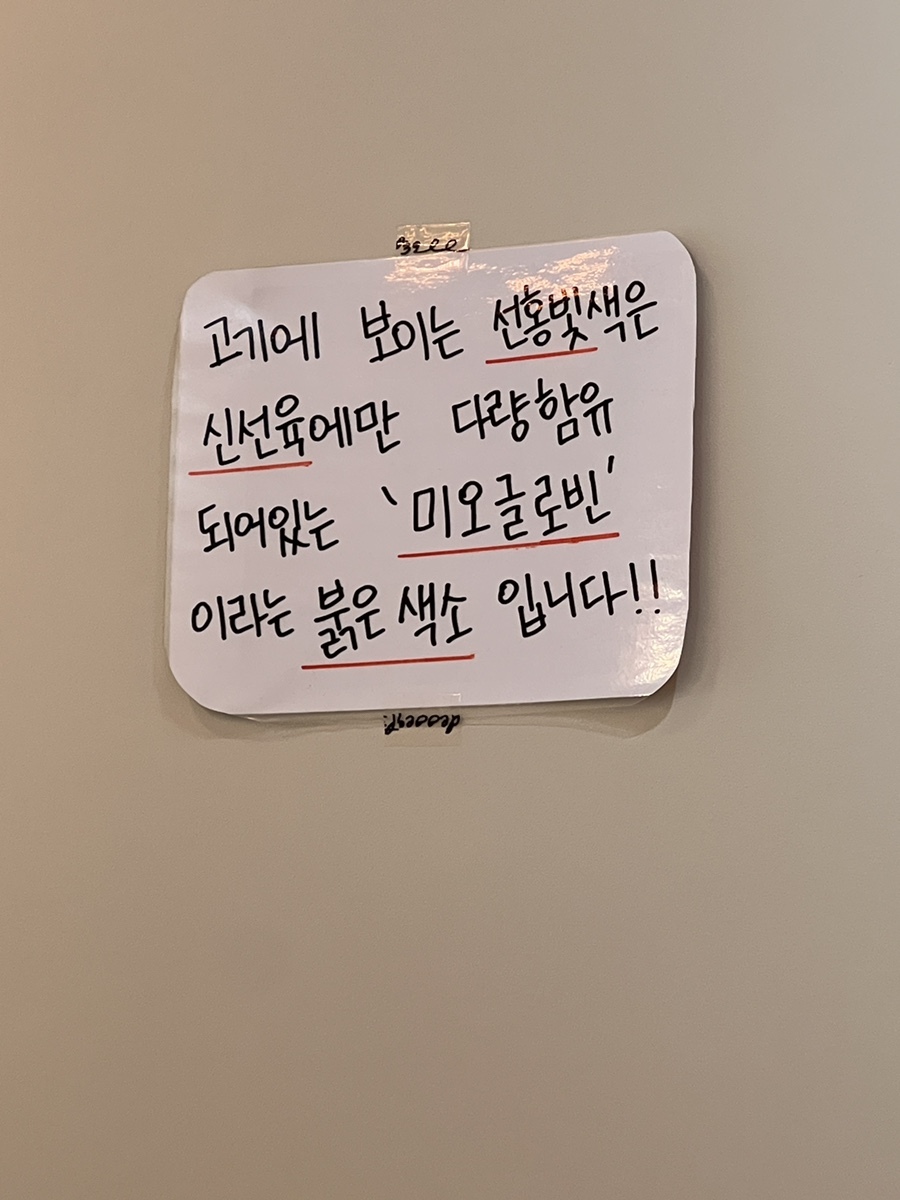 고기에 보이는 선홍빛색은
신선육에만 다량함유
되어있는 '미오글로빈'
이라는 붉은 색소 입니다!!